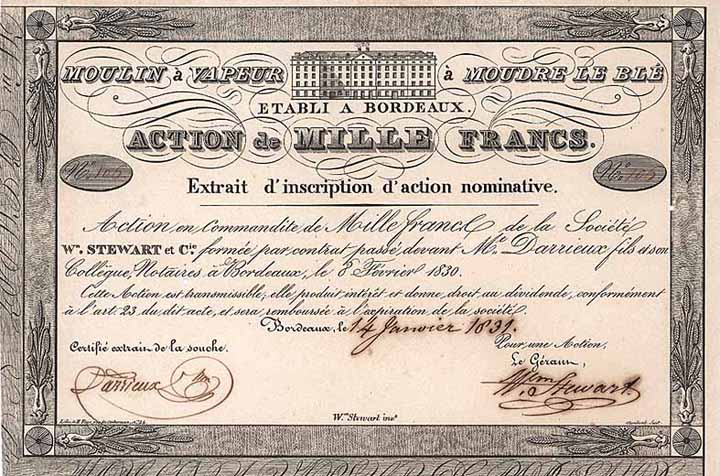 MOULIN à VAPEUR à MOUDRE LE BLÉ
ETABLI A BORDEAUX.
ACTION de MILLE FRANCS.
N.º 105 N.º 105
Extrait d'inscription d'action nominative.
Action en Commandite de Mille francs de la Société
Wm. STEWART et Cie. formée par contrat passé devant Me. Darrieux fils et son
Collègue, Notaires à Bordeaux, le 8 Février 1830.
Cette Action est transmissible, elle produit intérêt et donne droit au dividende, conformément
à l'art. 23 du dit acte, et sera remboursée à l'expiration de la société.
Bordeaux, le 14 Janvier 1831.
Certifié extrait de la souche. Pour une Action,
Le Gérant,
Darrieux Wm Stewart
Wm. Stewart inv.